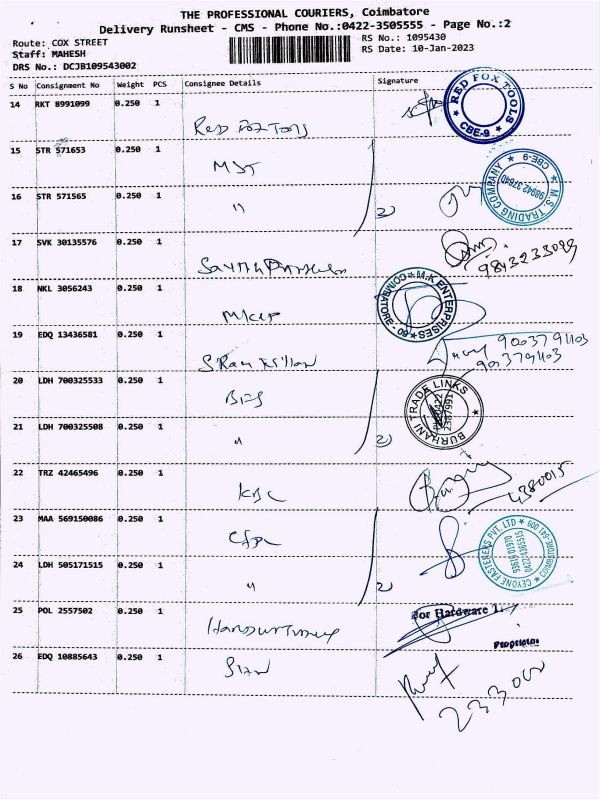 THE PROFESSIONAL COURIERS, Coimbatore
Delivery Runsheet - CMS - Phone No.:0422-3505555 - Page No.:2
Route: COX STREET
Staff: MAHESH
DRS No.: DCJB109543002
RS No.: 1095430
RS Date: 10-Jan-2023
S No Consignment No Weight PCS Consignee Details Signature
14 RKT 8991099 0.250 1
RED FOX TOOLS
RED FOX TOOLS CBE-9
15 STR 571653 0.250 1
MST
16 STR 571565 0.250 1
" 2
M.S. TRADING COMPANY CBE-9 98942 37840
17 SVK 30135576 0.250 1
9843233099
18 NKL 3056243 0.250 1
M.K ENTERPRISES COIMBATORE
19 EDQ 13436581 0.250 1
903791103
20 LDH 700325533 0.250 1
21 LDH 700325508 0.250 1
" 2
BURHANI TRADE LINKS 0422 2387991
22 TRZ 42465496 0.250 1
KBC
4380015
23 MAA 569150086 0.250 1
CFPL
24 LDH 505171515 0.250 1
" 2
CEYONE FASTENERS PVT. LTD COIMBATORE-641 009
25 POL 2557502 0.250 1
for Hardware
Proprietor
26 EDQ 10885643 0.250 1
233000